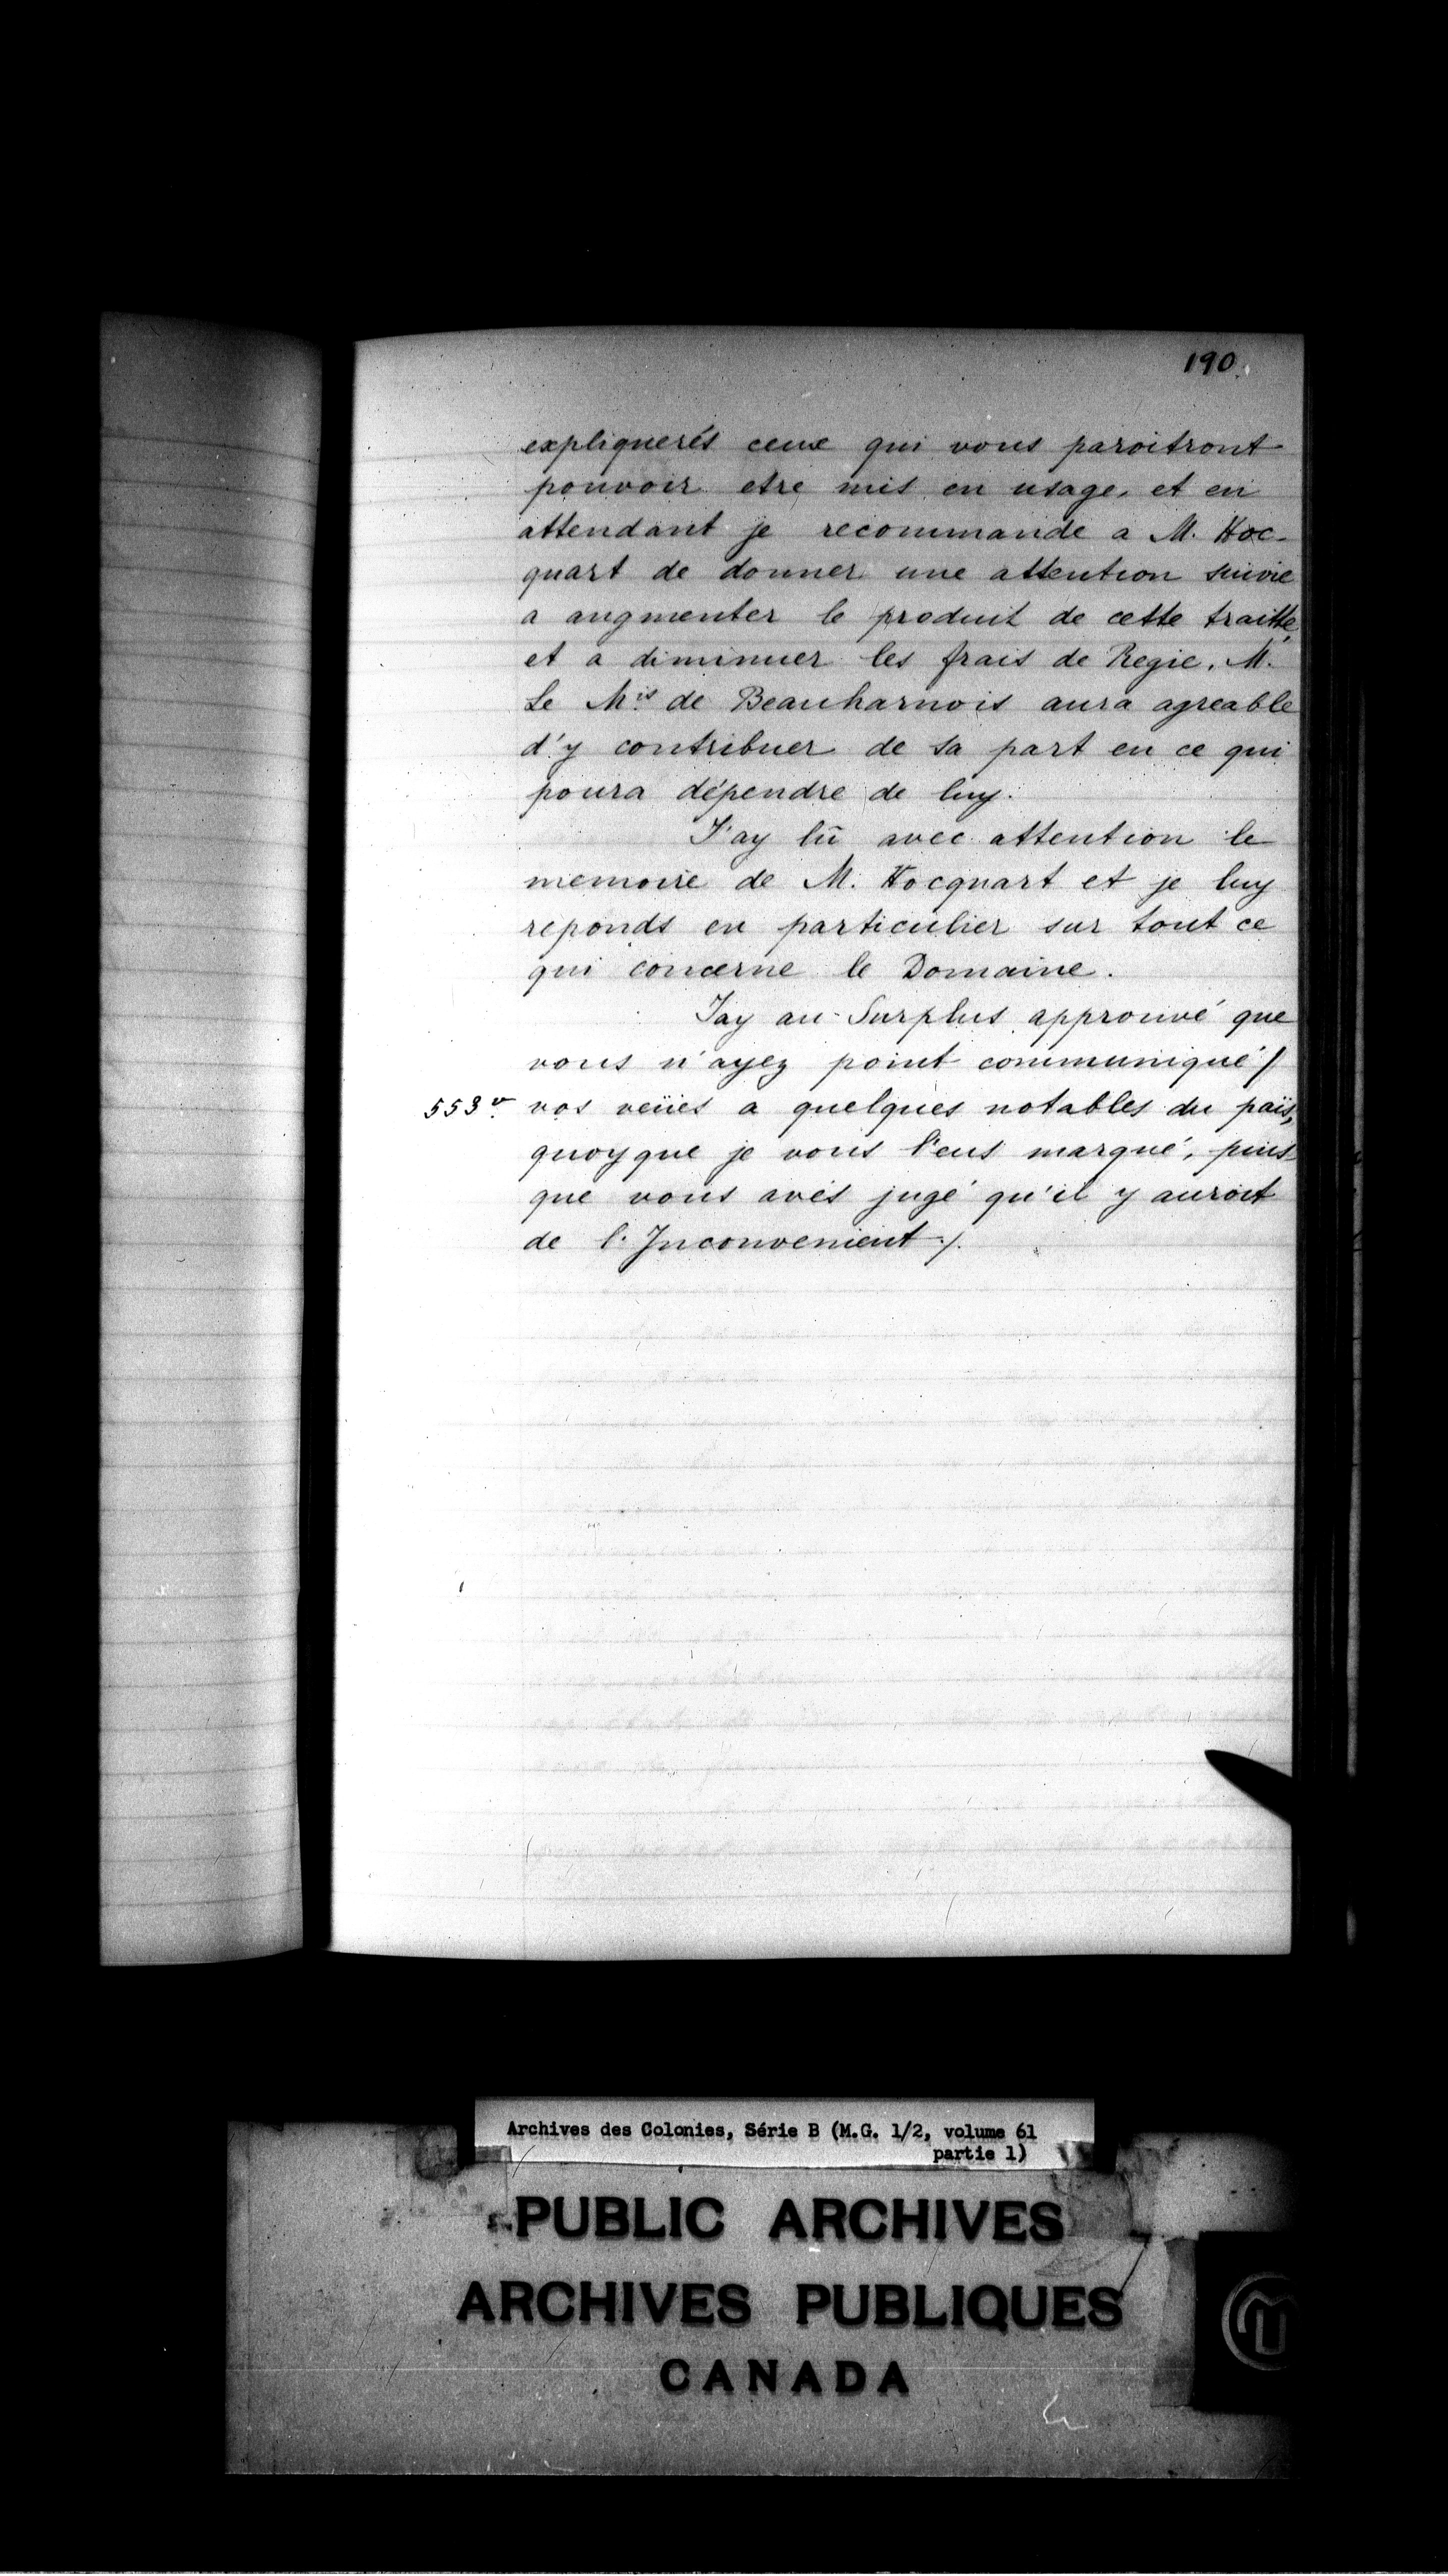 190.
expliquerés ceux qui vous paroitront
pouvoir etre mis en usage, et en
attendant je recommande a M. Hoc-
quart de donner une attention suivie
a augmenter le produit de cette traitte,
et a diminuer les frais de Regie. M.
Le Mis de Beauharnois aura agreable
d'y contribuer de sa part en ce qui
poura dépendre de luy.
J'ay lû avec attention le
memoire de M. Hocquart et je luy
reponds en particulier sur tout ce
qui concerne le Domaine.
Jay au Surplus approuvé que
vous n'ayez point communiqué /
553 v. vos veües a quelques notables du païs,
quoyque je vous l'eus marqué, puis
que vous avés jugé qu'il y auroit
de l'Inconvenient ./.
Archives des Colonies, Série B (M.G. 1/2, volume 61
partie 1)
PUBLIC ARCHIVES
ARCHIVES PUBLIQUES
CANADA